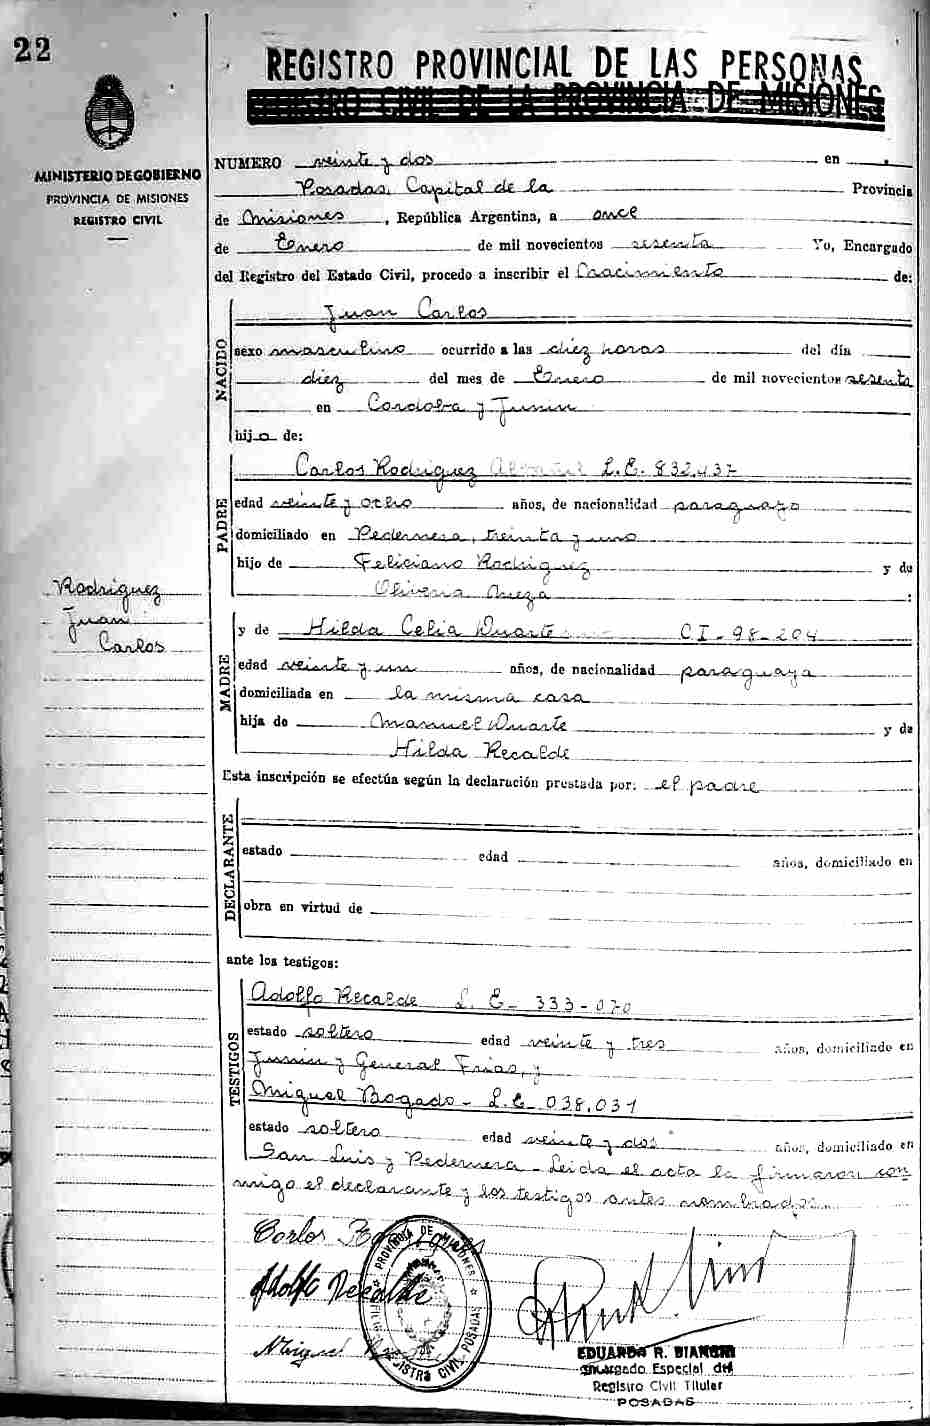 22
MINISTERIO DE GOBIERNO
PROVINCIA DE MISIONES
REGISTRO CIVIL
Rodriguez
Juan
Carlos
REGISTRO PROVINCIAL DE LAS PERSONAS
REGISTRO CIVIL DE LA PROVINCIA DE MISIONES
NUMERO veinte y dos en
Posadas, Capital de la Provincia
de Misiones, República Argentina, a once
de Enero de mil novecientos sesenta Yo, Encargado
del Registro del Estado Civil, procedo a inscribir el Nacimiento de:
NACIDO
Juan Carlos
sexo masculino ocurrido a las diez horas del día
diez del mes de Enero de mil novecientos sesenta
en Cordoba y Junin
hijo de:
PADRE
Carlos Rodriguez L.E. 832.437
edad veinte y ocho años, de nacionalidad paraguayo
domiciliado en Pedernera, treinta y uno
hijo de Feliciano Rodriguez y de
Meza :
MADRE
y de Hilda Celia Duarte CI-98-204
edad veinte y un años, de nacionalidad paraguaya
domiciliada en la misma casa
hija de Manuel Duarte y de
Hilda Recalde
Esta inscripción se efectúa según la declaración prestada por: el padre
DECLARANTE
estado edad años, domiciliado en
obra en virtud de
ante los testigos:
TESTIGOS
Adolfo Recalde L.E- 333-070
estado soltero edad veinte y tres años, domiciliado en
Junin y General Frias, y
Miguel Bogado - L.E- 038.031
estado soltero edad veinte y dos años, domiciliado en
San Luis y Pedernera - Leida el acta la firmaron con
migo el declarante y los testigos antes nombrados.
Carlos Rodriguez
Adolfo Recalde
Miguel
PROVINCIA DE MISIONES
REGISTRO CIVIL POSADAS
EDUARDO R. BIANCHI
Encargado Especial del
Registro Civil Titular
POSADAS